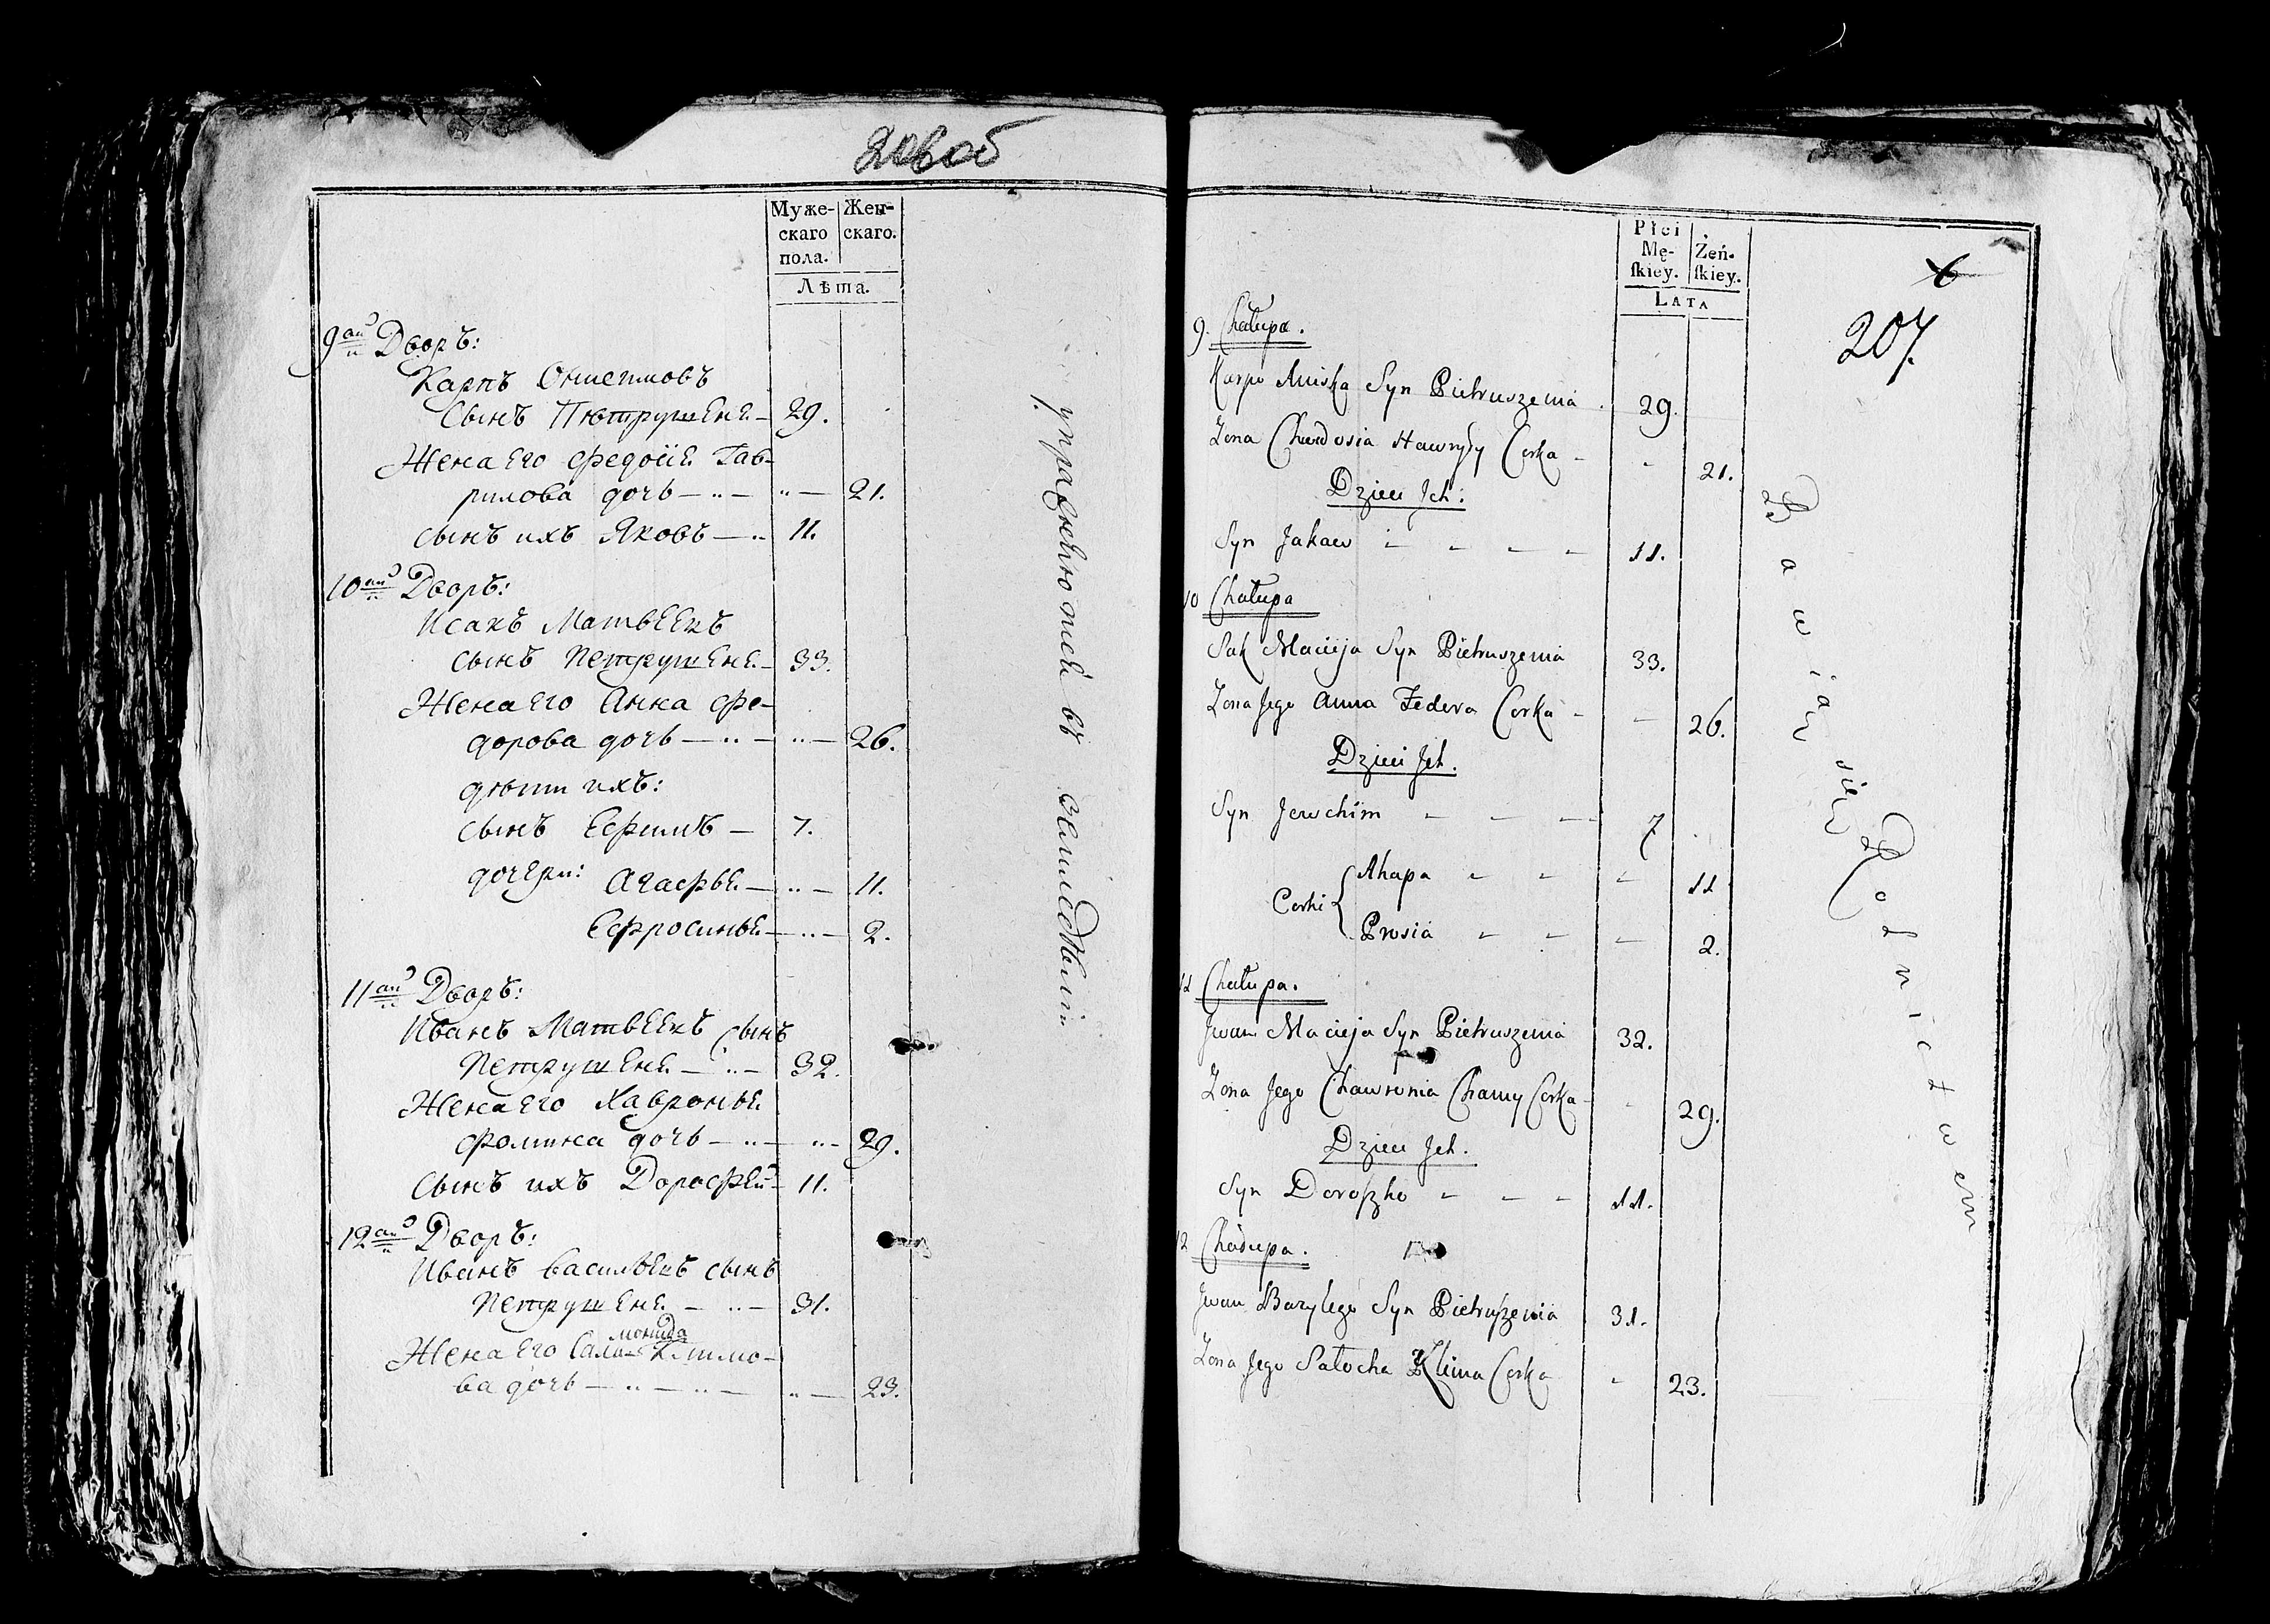 206об
Муже- Жен-
скаго скаго.
пола.
Лѣта.
9ый Дворъ:
Карпъ
Сынъ Пютрушеня 29.
Жена его Федосія Гав-
рилова дочь — „ — „ — 21.
сынъ ихъ Яковъ — „ 11.
10ый Дворъ:
Исакъ Матвѣевъ
сынъ Петрушеня 33.
Жена его Анна Фе-
дорова дочь — „ — „ — 26.
дѣти ихъ:
сынъ Ефимъ — 7.
дочери: Агафья — „ — 11.
Ефросинья — „ — 2.
11ый Дворъ:
Иванъ Матвѣевъ сынъ
Петрушеня — „ — 32.
Жена его Хавронья
Фомина дочь — „ — „ — 29.
Сынъ ихъ Дорофей 11.
12ый Дворъ:
Иванъ Васильевъ сынъ
Петрушеня — „ — 31.
монида
Жена его Климо-
ва дочь — „ — „ — „ — 23.
упражняются въ земледѣліи
Płci
Mę- Żeń-
ſkiey. ſkiey.
LATA
6
207.
9. Chałupa.
Karpo Aniska Syn Pietruszenia 29.
Zona Chwedosia Hawryły Corka - - 21.
Dzieci Jch:
Syn Jakow - - - - 11.
10 Chałupa
Sak Macieja Syn Pietruszenia 33.
Zona Jego Anna Fedora Corka - - 26.
Dzieci Jch.
Syn Jewchim - - - 7
Ahapa - - - 11
Corki
Prosia - - - 2.
11 Chałupa.
Jwan Macieja Syn Pietruszenia 32.
Zona Jego Chawronia Chamy Corka - - 29.
Dzieci Jch.
Syn Doroſzko - - - 11.
12 Chałupa.
Jwan Bazylego Syn Pietruſzenia 31.
Zona Jego Sałocha Klima Corka - 23.
Bawiąc się Rolnictwem